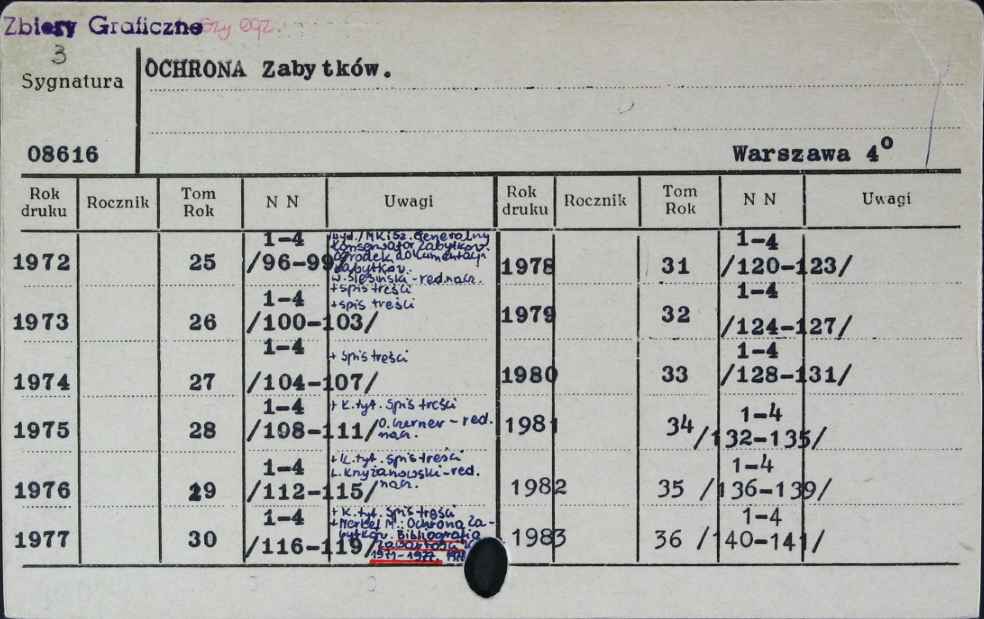 Zbiory Graficzne
3
Sygnatura
OCHRONA Zabytków.
08616
Warszawa 4°
Rok druku Rocznik Tom Rok N N Uwagi Rok druku Rocznik Tom Rok N N Uwagi
1972 25 1-4 /96-99/
Konserwator Zabytków.
+ spis treści
1973 26 1-4 /100-103/ + spis treści
1974 27 1-4 /104-107/ + spis treści
1975 28 1-4 /108-111/ + k. tyt. spis treści
- red. nacz.
1976 29 1-4 /112-115/ + k. tyt. spis treści
L. Krzyżanowski - red. nacz.
1977 30 1-4 /116-119/ + k. tyt. spis treści
Ochrona Zabytków. Bibliografia zawartości
1978 31 1-4 /120-123/
1979 32 1-4 /124-127/
1980 33 1-4 /128-131/
1981 34 1-4 /132-135/
1982 35 1-4 /136-139/
1983 36 1-4 /140-141/